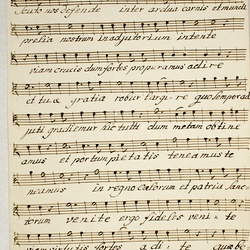 Scuto nos defende inter ardua carnis et mundi
prelia nostrum in adjutorium intente
viam crucis dum fortes properamus adire
et tua gratia robur largire quo semper ad
juti gradiemur hic tuti dum metam obtine
amus et portum pietatis teneamus te
neamus in regno Caelorum et patria Sanc
torum venite ergo fideles venite
fortes adite